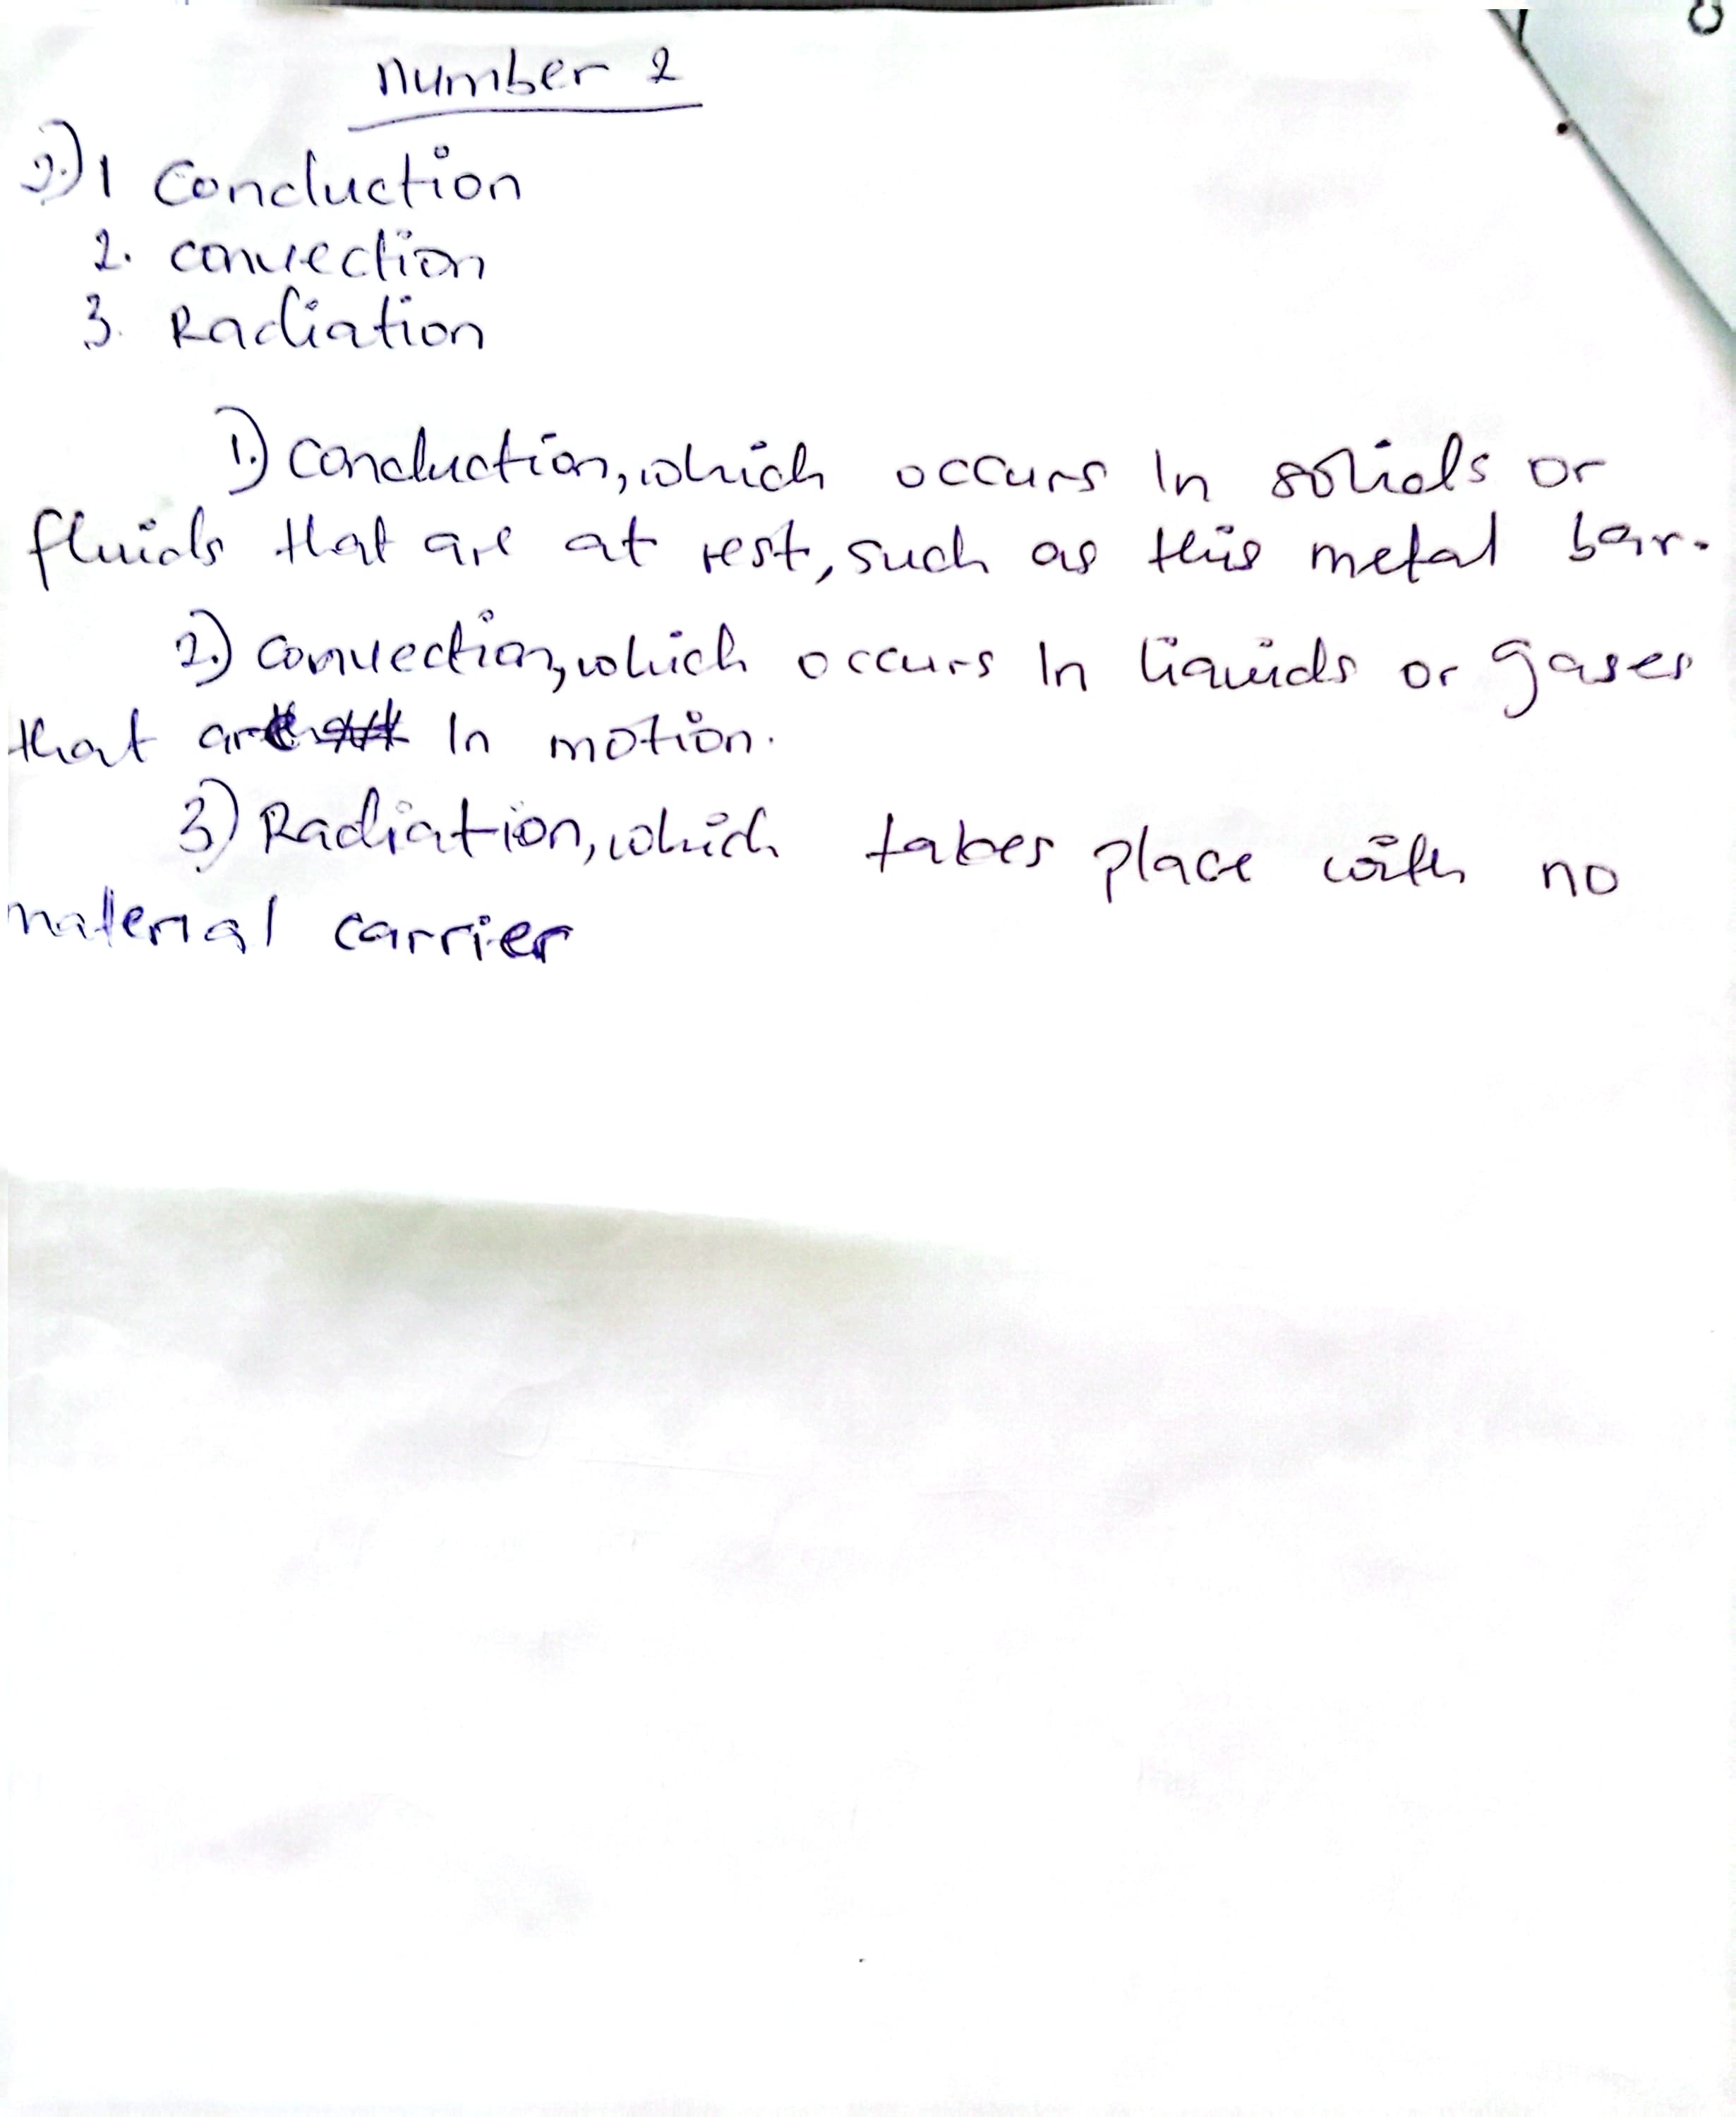 Number 2
2.) 1 Conduction
2. convection
3. Radiation
1.) Conduction, which occurs In solids or
fluids that are at rest, such as this metal bar.
2.) Convection, which occurs In liquids or gases
that are In motion.
3) Radiation, which takes place with no
material carrier